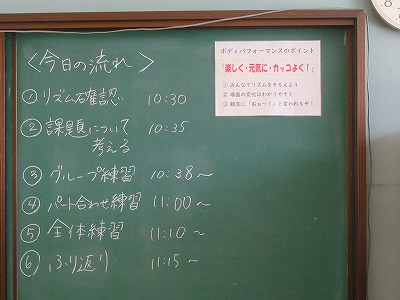 <今日の流れ>
① リズム確認 10:30
② 課題について 10:35
考える
③ グループ練習 10:38~
④ パート合わせ練習 11:00~
⑤ 全体練習 11:10~
⑥ ふり返り 11:15~
ボディパフォーマンスのポイント
「楽しく・元気に・カッコよく！」
① みんなでリズムをそろえよう
② 場面の変化はわかりやすく
③ 観客に「おぉ～！」と言われるぞ！